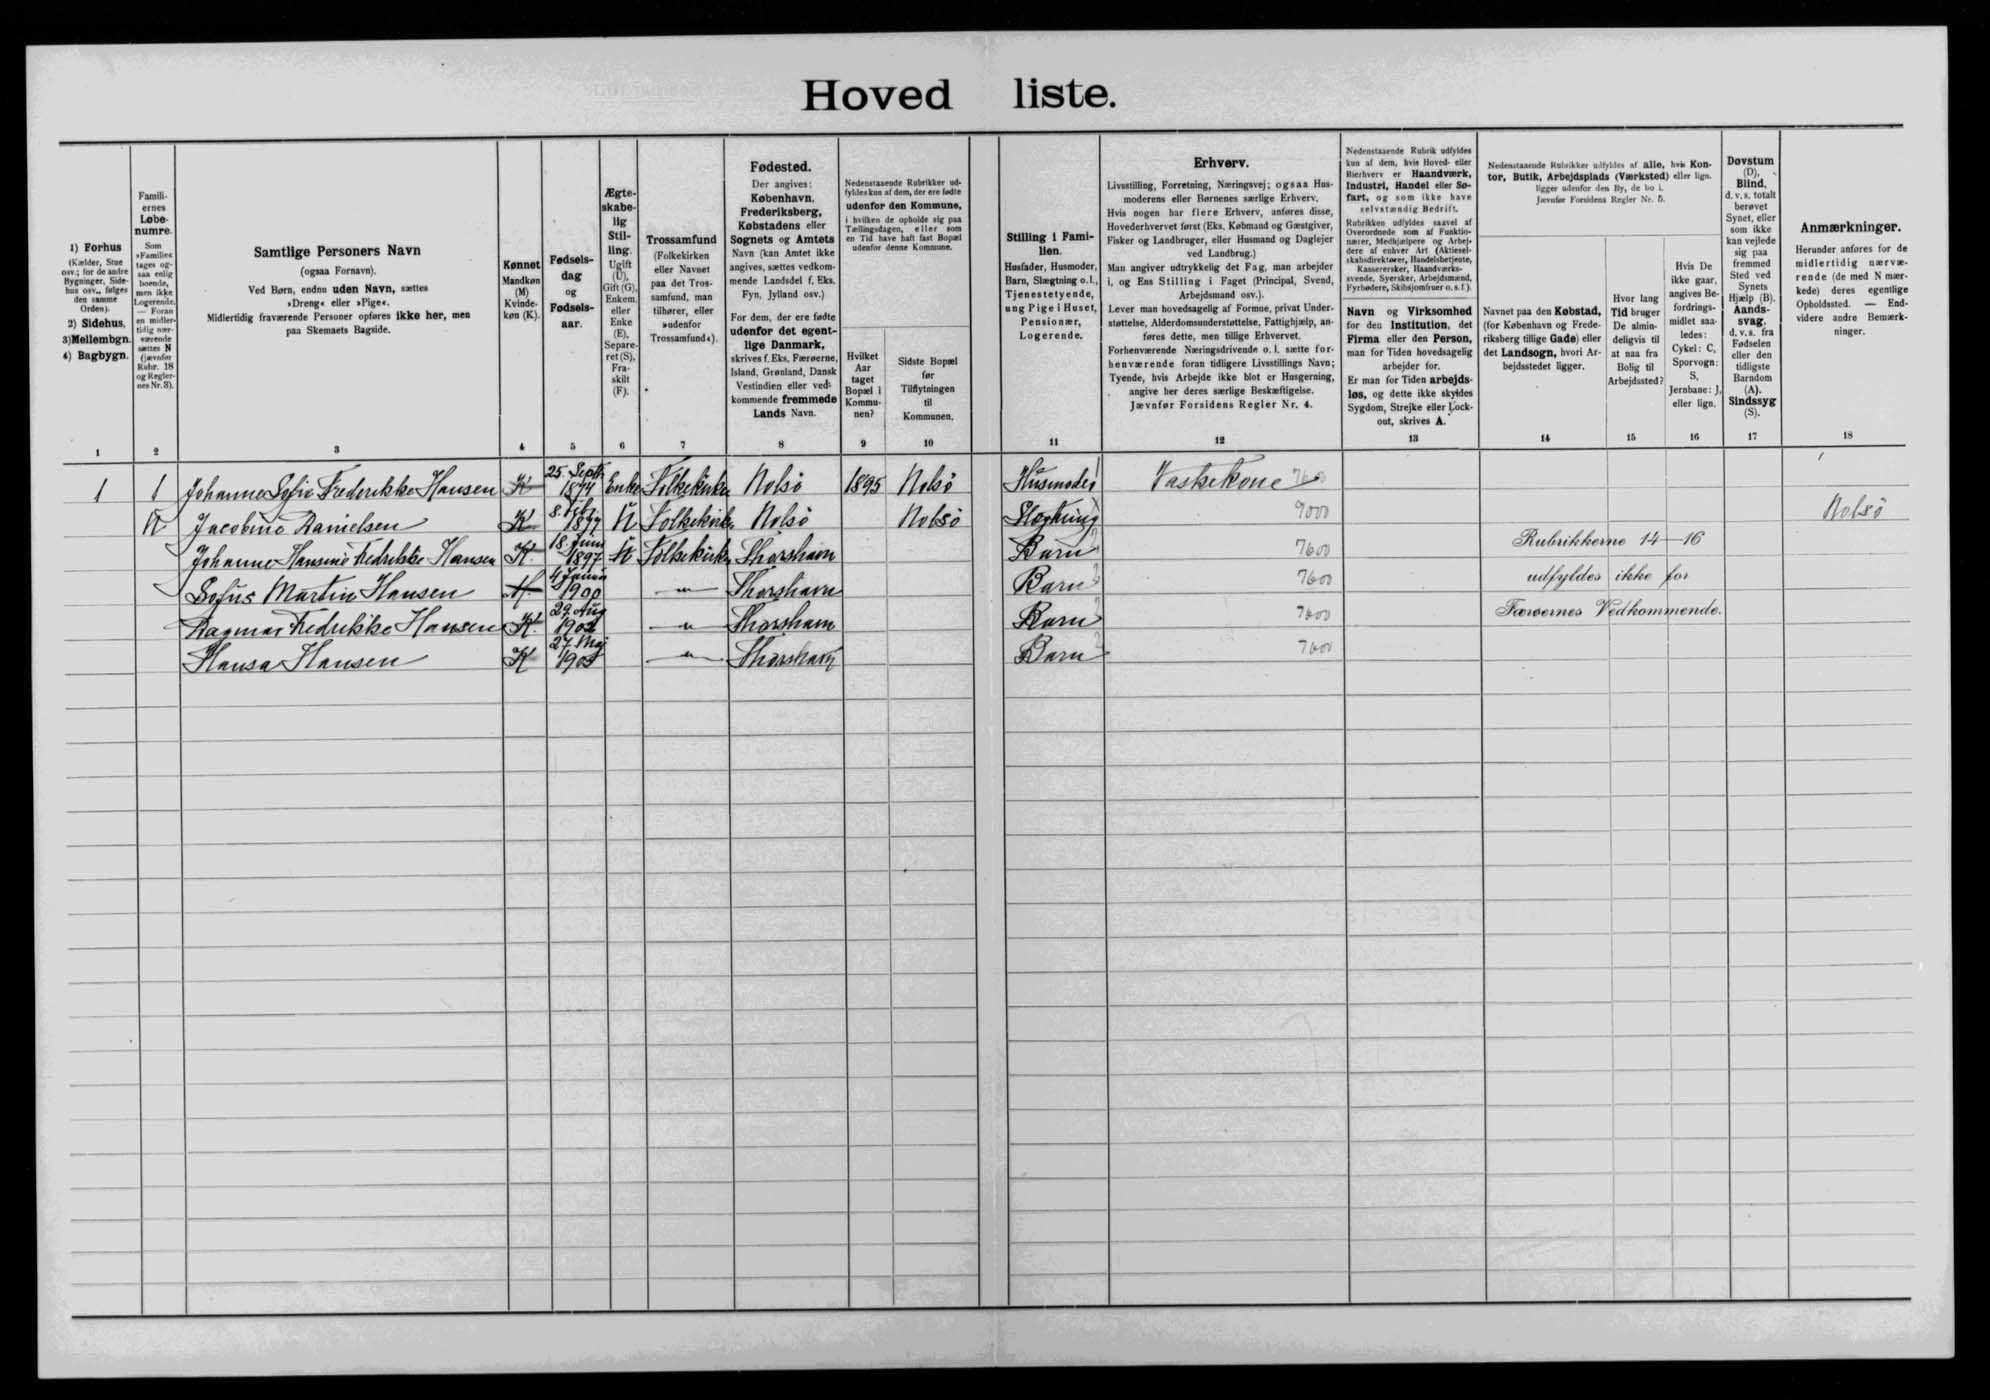 Hoved liste.
1) Forhus
(Kælder, Stue
osv.; for de andre
Bygninger, Side-
hus osv., følges
den samme
Orden).
2) Sidehus.
3) Mellembgn.
4) Bagbygn.
1
Famili-
ernes
Løbe-
numre.
Som
»Familie«
tages og-
saa enlig
boende,
men ikke
Logerende.
— Foran
en midler-
tidig nær-
værende
sættes N
(jævnfør
Rubr. 18
og Regler-
nes Nr. 3).
2
Samtlige Personers Navn
(ogsaa Fornavn).
Ved Børn, endnu uden Navn, sættes
»Dreng« eller »Pige«.
Midlertidig fraværende Personer opføres ikke her, men
paa Skemaets Bagside.
3
Kønnet
Mandkøn
(M)
Kvinde-
køn (K).
4
Fødsels-
dag
og
Fødsels-
aar.
5
Ægte-
skabe-
lig
Stil-
ling.
Ugift
(U),
Gift (G),
Enkem.
eller
Enke
(E),
Separe-
ret (S),
Fra-
skilt
(F).
6
Trossamfund
(Folkekirken
eller Navnet
paa det Tros-
samfund, man
tilhører, eller
»udenfor
Trossamfund«).
7
Fødested.
Der angives:
København,
Frederiksberg,
Købstadens eller
Sognets og Amtets
Navn (kan Amtet ikke
angives, sættes vedkom-
mende Landsdel f. Eks.
Fyn, Jylland osv.)
For dem, der ere fødte
udenfor det egent-
lige Danmark,
skrives f. Eks. Færøerne,
Island, Grønland, Dansk
Vestindien eller ved-
kommende fremmede
Lands Navn.
8
Nedenstaaende Rubrikker ud-
fyldes kun af dem, der ere fødte
udenfor den Kommune,
i hvilken de opholde sig paa
Tællingsdagen, eller som
en Tid have haft fast Bopæl
udenfor denne Kommune.
Hvilket
Aar
taget
Bopæl i
Kommu-
nen?
9
Sidste Bopæl
før
Tilflytningen
til
Kommunen.
10
Stilling i Fami-
lien.
Husfader, Husmoder,
Barn, Slægtning o.l.,
Tjenestetyende,
ung Pige i Huset,
Pensionær,
Logerende.
11
Erhverv.
Livsstilling, Forretning, Næringsvej; ogsaa Hus-
moderens eller Børnenes særlige Erhverv.
Hvis nogen har flere Erhverv, anføres disse,
Hovederhvervet først (Eks. Købmand og Gæstgiver,
Fisker og Landbruger, eller Husmand og Daglejer
ved Landbrug.)
Man angiver udtrykkelig det Fag, man arbejder
i, og Ens Stilling i Faget (Principal, Svend,
Arbejdsmand osv.).
Lever man hovedsagelig af Formue, privat Under-
støttelse, Alderdomsunderstøttelse, Fattighjælp, an-
føres dette, men tillige Erhvervet.
Forhenværende Næringsdrivende o. l. sætte for-
henværende foran tidligere Livsstillings Navn;
Tyende, hvis Arbejde ikke blot er Husgerning,
angive her deres særlige Beskæftigelse.
Jævnfør Forsidens Regler Nr. 4.
12
Nedenstaaende Rubrik udfyldes
kun af dem, hvis Hoved- eller
Bierhverv er Haandværk,
Industri, Handel eller Sø-
fart, og som ikke have
selvstændig Bedrift.
Rubrikken udfyldes saavel af
Overordnede som af Funktio-
nærer, Medhjælpere og Arbej-
dere af enhver Art (Aktiesel-
skabsdirektører, Handelsbetjente,
Kasserersker, Haandværks-
svende, Syersker, Arbejdsmænd,
Fyrbødere, Skibsjomfruer o. s. f.).
Navn og Virksomhed
for den Institution, det
Firma eller den Person,
man for Tiden hovedsagelig
arbejder for.
Er man for Tiden arbejds-
løs, og dette ikke skyldes
Sygdom, Strejke eller Lock-
out, skrives A.
13
Nedenstaaende Rubrikker udfyldes af alle, hvis Kon-
tor, Butik, Arbejdsplads (Værksted) eller lign.
ligger udenfor den By, de bo i.
Jævnfør Forsidens Regler Nr. 5.
Navnet paa den Købstad,
(for København og Frede-
riksberg tillige Gade) eller
det Landsogn, hvori Ar-
bejdsstedet ligger.
14
Hvor lang
Tid bruger
De almin-
deligvis til
at naa fra
Bolig til
Arbejdssted?
15
Hvis De
ikke gaar,
angives Be-
fordrings-
midlet saa-
ledes:
Cykel: C,
Sporvogn:
S,
Jernbane: J,
eller lign.
16
Døvstum
(D),
Blind,
d. v. s. totalt
berøvet
Synet, eller
som ikke
kan vejlede
sig paa
fremmed
Sted ved
Synets
Hjælp (B).
Aands-
svag,
d. v. s. fra
Fødselen
eller den
tidligste
Barndom
(A).
Sindssyg
(S).
17
Anmærkninger.
Herunder anføres for de
midlertidig nærvæ-
rende (de med N mær-
kede) deres egentlige
Opholdssted. — End-
videre andre Bemærk-
ninger.
18
1 1 Johanne Sofie Frederikke Hansen K 25. Septb. 1874 Enke Folkekirken Nolsö 1895 Nolsö Husmoder Vaskekone 7600
N Jacobine Danielsen K 8. Feb. 1877 U Folkekirk. Nolsö Nolsö Slægtning 9000 Nolsö
Johanne Hansine Fredrikke Hansen K. 18. Juni 1897 U Folkekirken Thorshavn Barn 7600 Rubrikkerne 14—16
Sofus Martin Hansen M. 4 Januar 1900 — " — Thorshavn Barn 7600 udfyldes ikke for
Dagmar Fredrikke Hansen K. 29. Aug — " Thorshavn Barn 7600 Færøernes Vedkommende.
Hansa Hansen K 27. Maj — " — Thorshavn Barn 7600